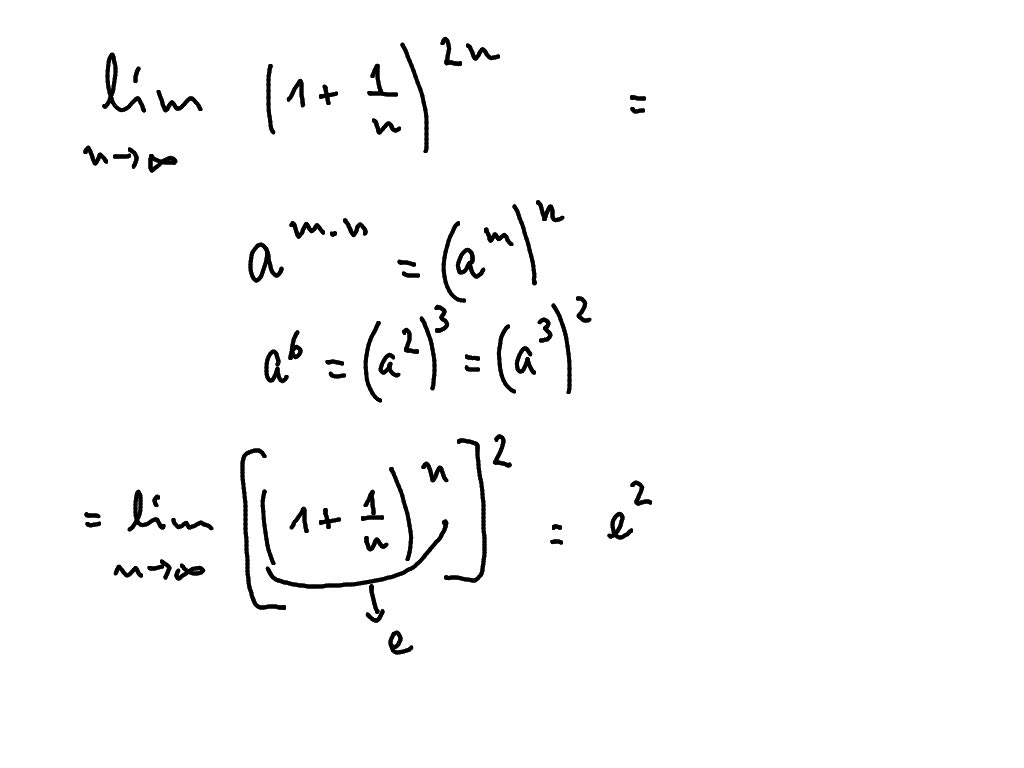 lim n→∞ (1 + 1/n)^2n =
a^m.n = (a^m)^n
a^6 = (a^2)^3 = (a^3)^2
= lim n→∞ [(1 + 1/n)^n]^2 = e^2
↓
e